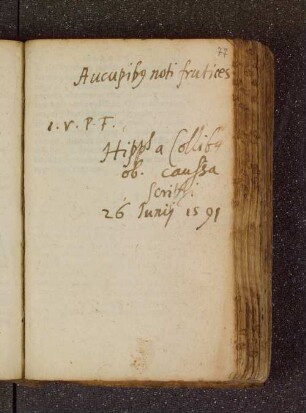 77
Aucupiby noti frutices
1. V. P. F.
Hippla Colliby
ob. caussa
scribs.
26 Junij 1591